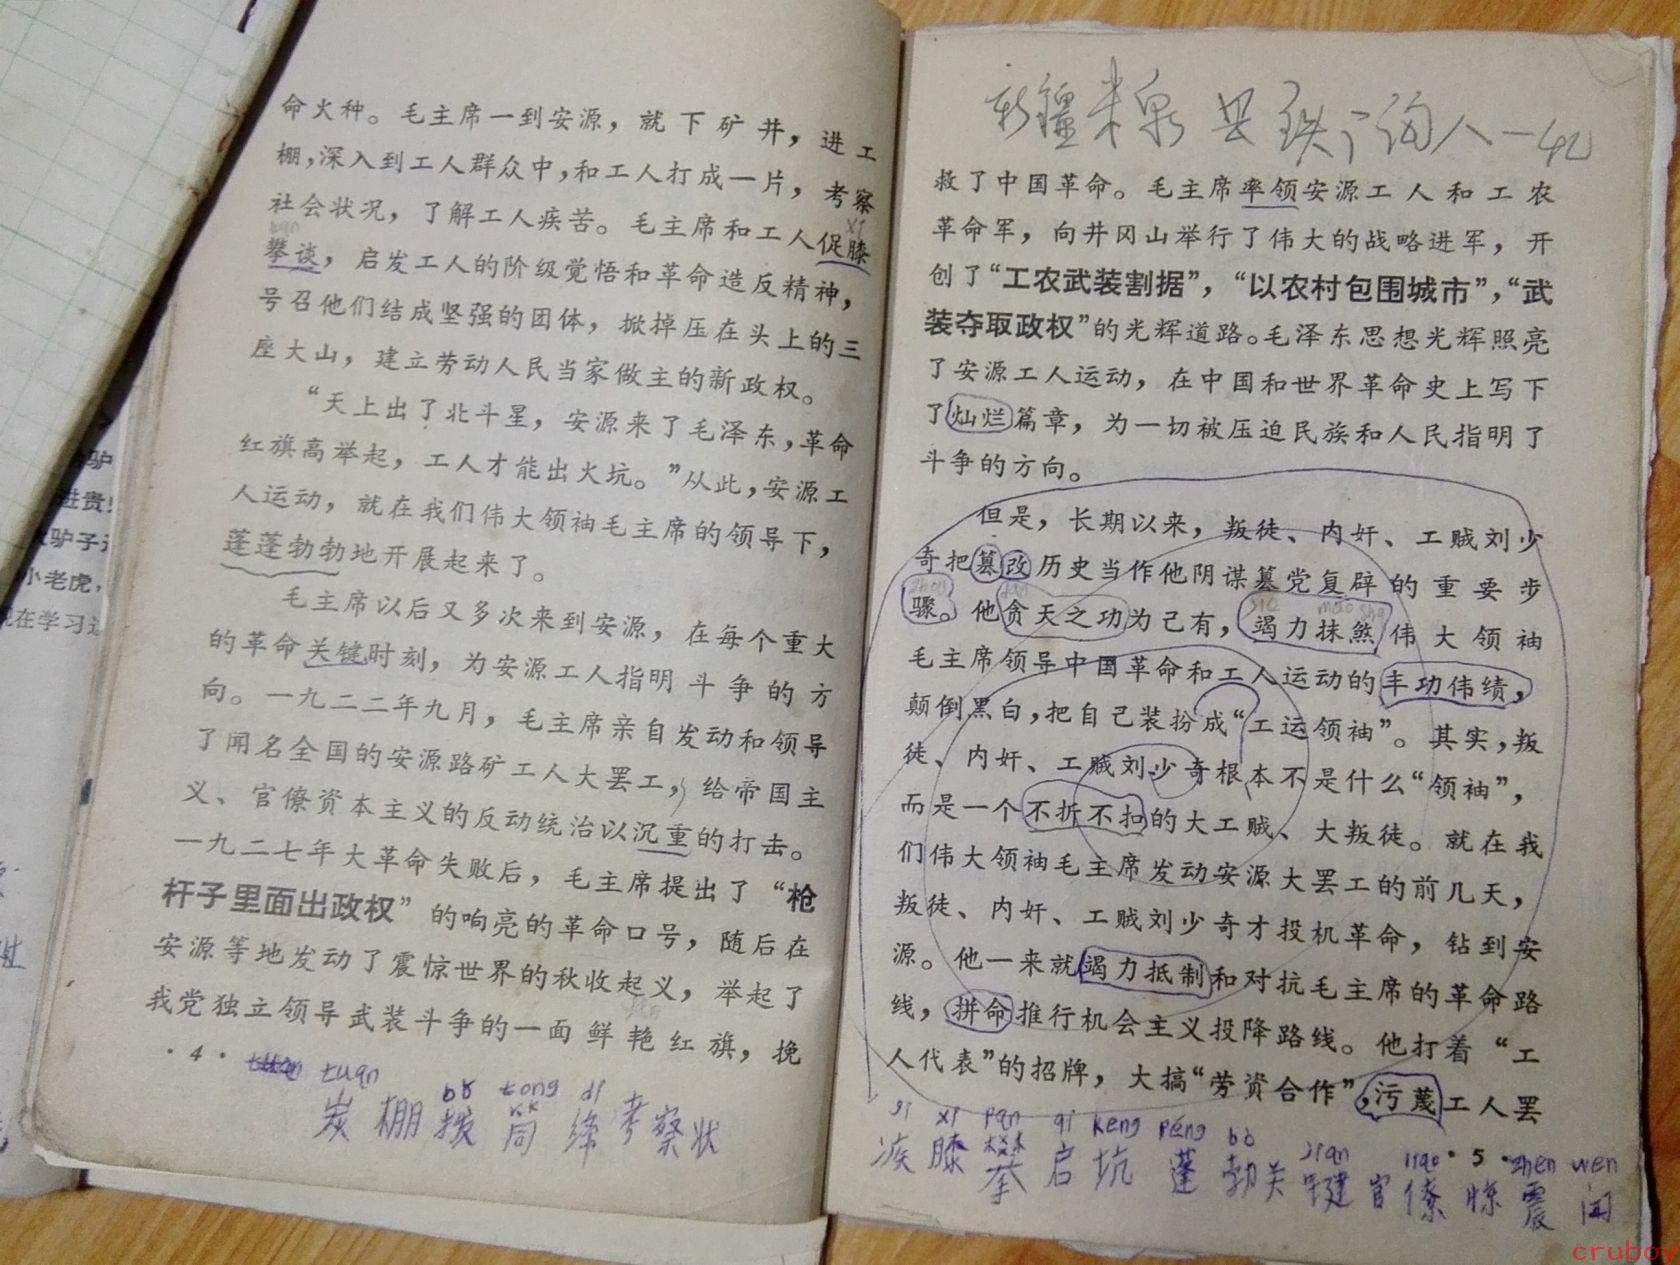 命火种。毛主席一到安源，就下矿井，进工
棚，深入到工人群众中，和工人打成一片，考察
社会状况，了解工人疾苦。毛主席和工人促膝
攀谈，启发工人的阶级觉悟和革命造反精神，
号召他们结成坚强的团体，掀掉压在头上的三
座大山，建立劳动人民当家做主的新政权。
“天上出了北斗星，安源来了毛泽东，革命
红旗高举起，工人才能出火坑。”从此，安源工
人运动，就在我们伟大领袖毛主席的领导下，
蓬蓬勃勃地开展起来了。
毛主席以后又多次来到安源，在每个重大
的革命关键时刻，为安源工人指明斗争的方
向。一九二二年九月，毛主席亲自发动和领导
了闻名全国的安源路矿工人大罢工，给帝国主
义、官僚资本主义的反动统治以沉重的打击。
一九二七年大革命失败后，毛主席提出了“枪
杆子里面出政权”的响亮的革命口号，随后在
安源等地发动了震惊世界的秋收起义，举起了
我党独立领导武装斗争的一面鲜艳红旗，挽
·4·
tuan
bō tong di
炭 棚 拨 筒 缔 考察状
新疆米泉县铁厂沟人一
救了中国革命。毛主席率领安源工人和工农
革命军，向井冈山举行了伟大的战略进军，开
创了“工农武装割据”，“以农村包围城市”，“武
装夺取政权”的光辉道路。毛泽东思想光辉照亮
了安源工人运动，在中国和世界革命史上写下
了灿烂篇章，为一切被压迫民族和人民指明了
斗争的方向。
但是，长期以来，叛徒、内奸、工贼刘少
奇把篡改历史当作他阴谋篡党复辟的重要步
骤。他贪天之功为己有，竭力抹煞伟大领袖
毛主席领导中国革命和工人运动的丰功伟绩，
颠倒黑白，把自己装扮成“工运领袖”。其实，叛
徒、内奸、工贼刘少奇根本不是什么“领袖”，
而是一个不折不扣的大工贼、大叛徒。就在我
们伟大领袖毛主席发动安源大罢工的前几天，
叛徒、内奸、工贼刘少奇才投机革命，钻到安
源。他一来就竭力抵制和对抗毛主席的革命路
线，拼命推行机会主义投降路线。他打着“工
人代表”的招牌，大搞“劳资合作”，污蔑工人罢
ji xi pan qi keng péng bó jian liao zhen wen
疾 膝 攀 启 坑 蓬 勃 关 键 官 僚 惊 震 闻
·5·
cruboy